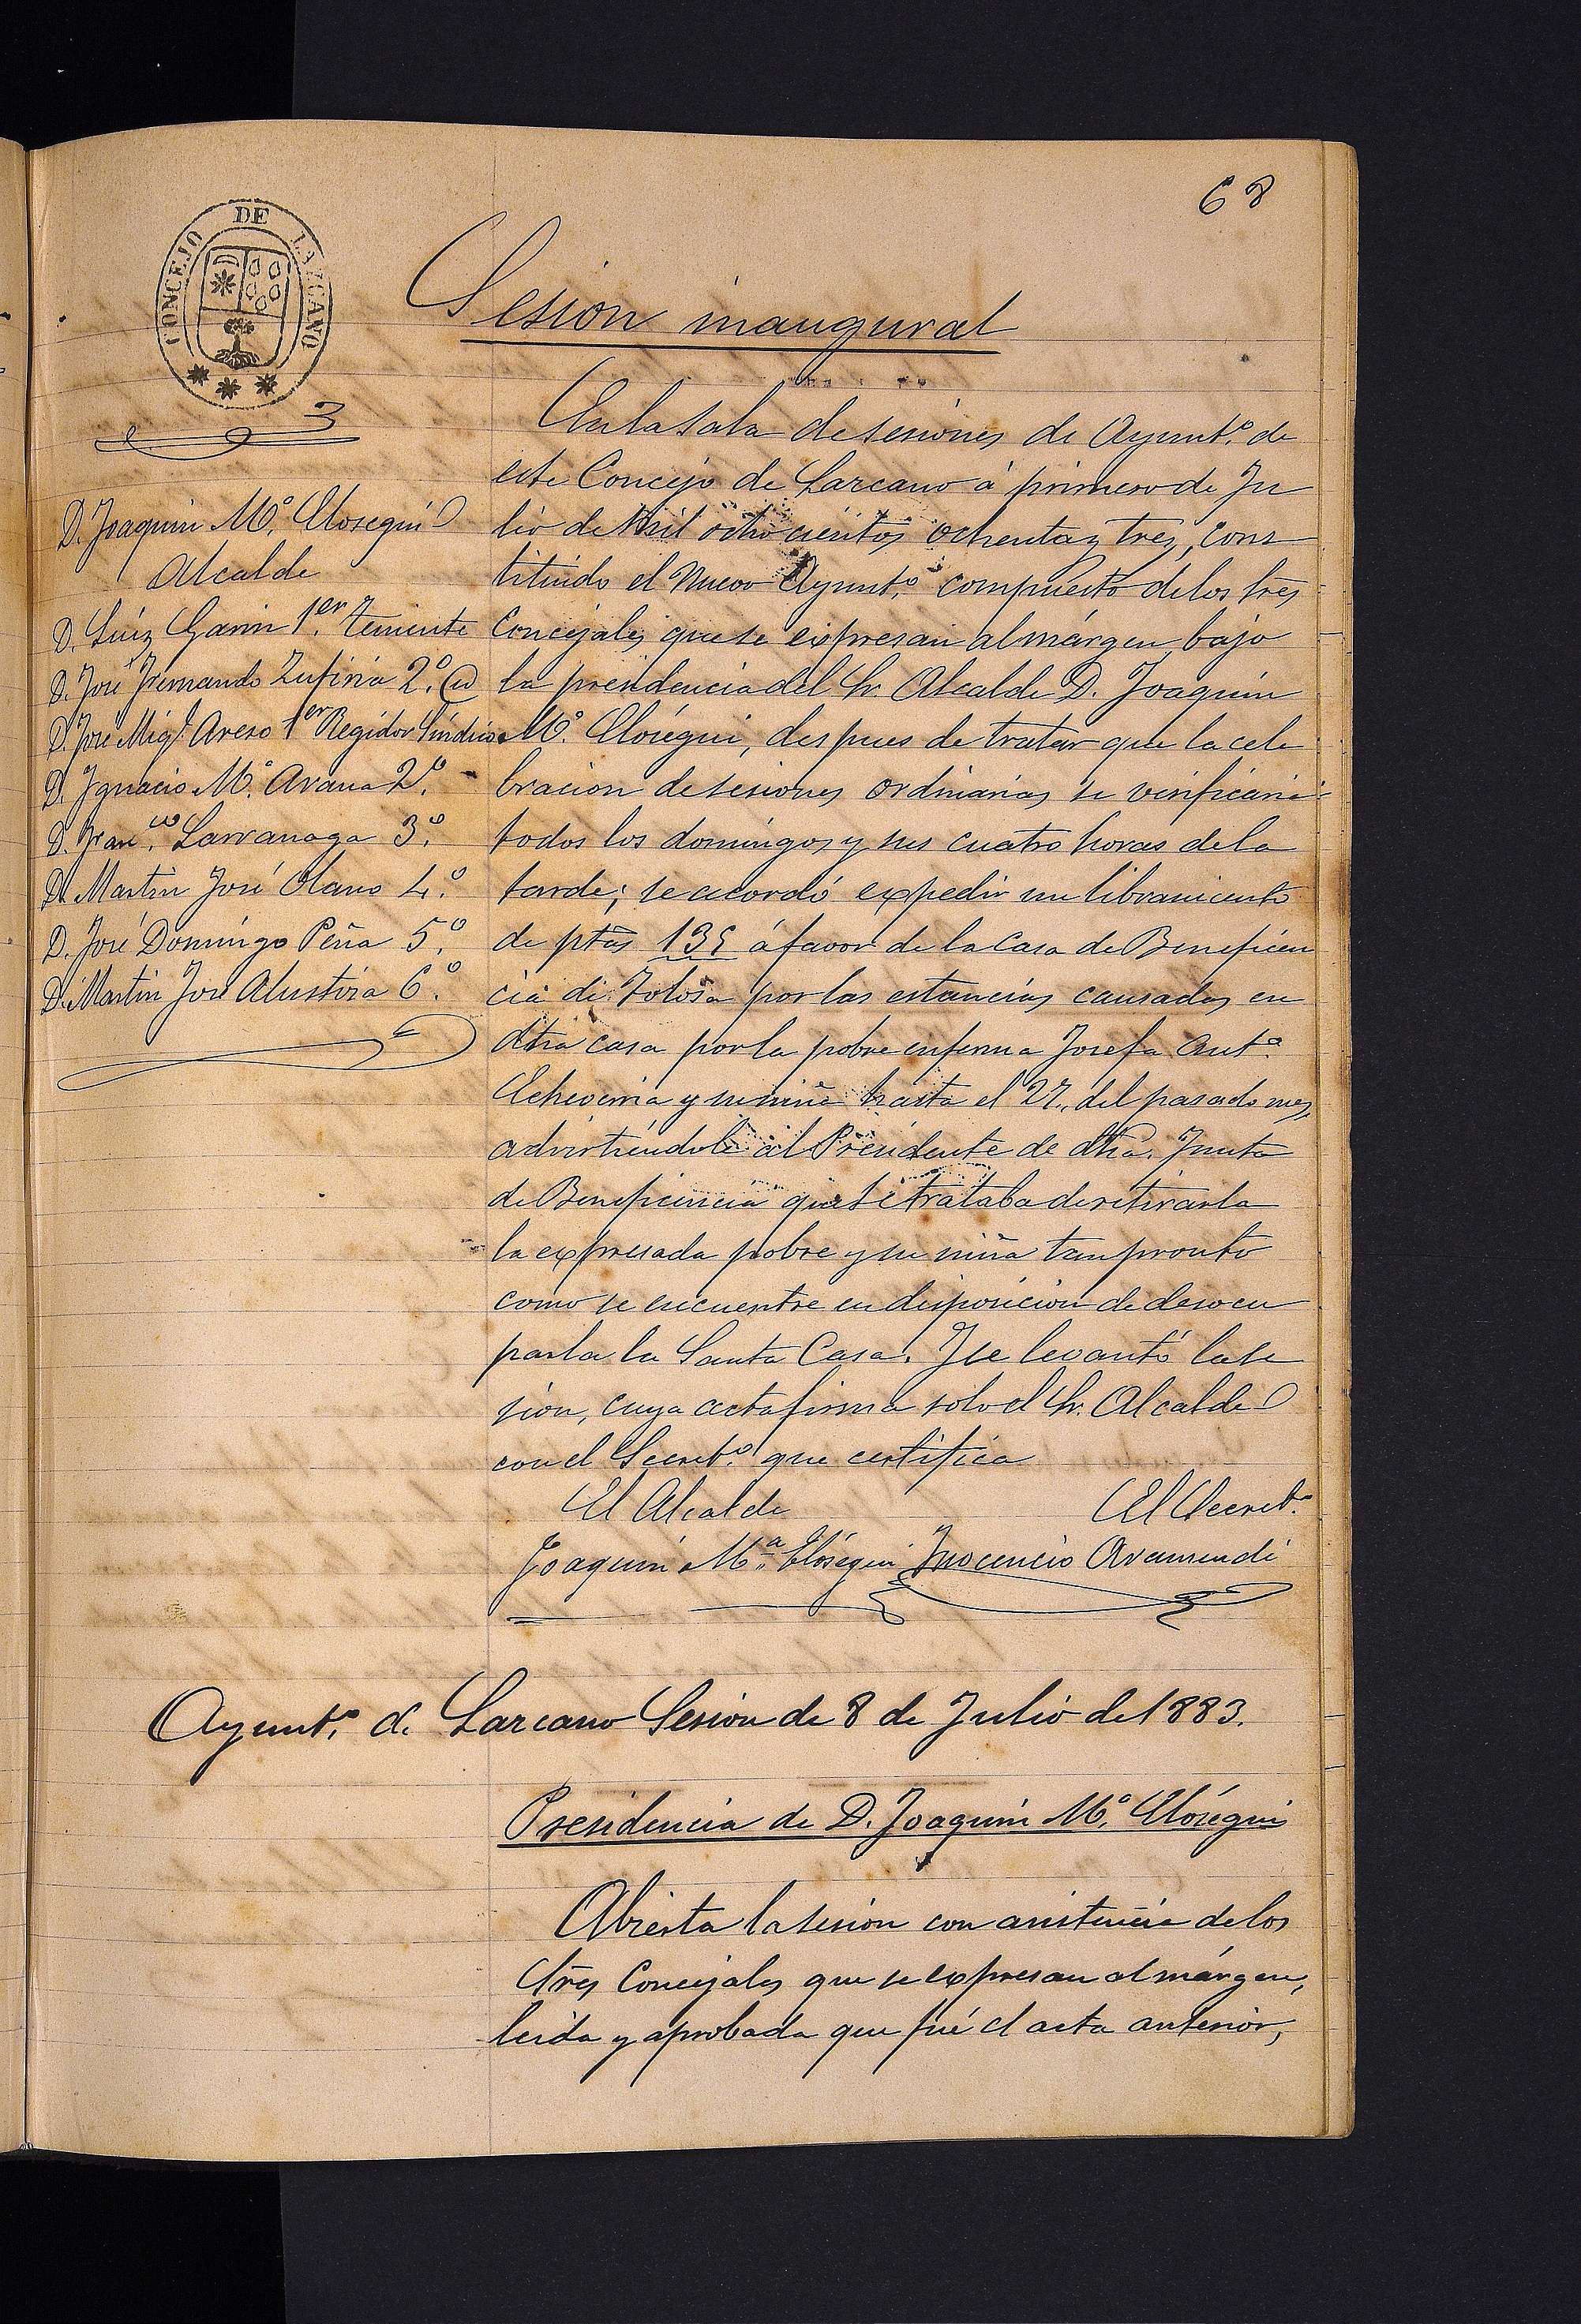 68
CONCEJO DE LAZCANO
Sesion inaugural
D. Joaquin M.ª Elosegui
Alcalde
D. Luiz Garin 1.er Teniente
D. José Fernando Zufiria 2.º id
D. José Mig.l Areso 1er Regidor Síndico
D. Ignacio M.ª Arana 2.º
D. Fran.co Larranaga 3.º
D. Martin José Olano 4.º
D. José Domingo Peña 5.º
D. Martin José Alustiza 6.º
En la Sala de sesiones de Ayunt.º de
este Concejo de Lazcano á primero de Ju
lio de Mil ochocientos ochenta y tres, cons
tituido el Nuevo Ayunt.º compuesto de los Sres
Concejales que se expresan al márgen bajo
la presidencia del Sr. Alcalde D. Joaquin
M.ª Elósegui, despues de tratar que la cele
bracion de sesiones ordinarias se verificaria
todos los domingos y sus cuatro horas de la
tarde; se acordó expedir un libramiento
de ptas 135 á favor de la Casa de Beneficen
cia de Tolosa por las estancias causadas en
dha casa por la pobre enferma Josefa Ant.ª
Echeverria y su niña hasta el 27, del pasado mes,
advirtiendole al Presidente de dha. Junta
de Beneficencia que se trataba de retirarla
la expresada pobre y su niña tan pronto
como se encuentre en disposicion de desocu
parla la Santa Casa. Y se levantó la se
sion, cuya acta firma solo el Sr. Alcalde
con el Secret.º que certifica
El Alcalde El Secret.º
Joaquin M.ª Elósegui Inocencio Aramendi
Ayunt.º de Lazcano Sesion de 8 de Julio de 1883.
Presidencia de D. Joaquin M.ª Elósegui
Abierta la sesion con asistencia de los
Sres Concejales que se expresan al márgen,
leida y aprobada que fué el acta anterior,